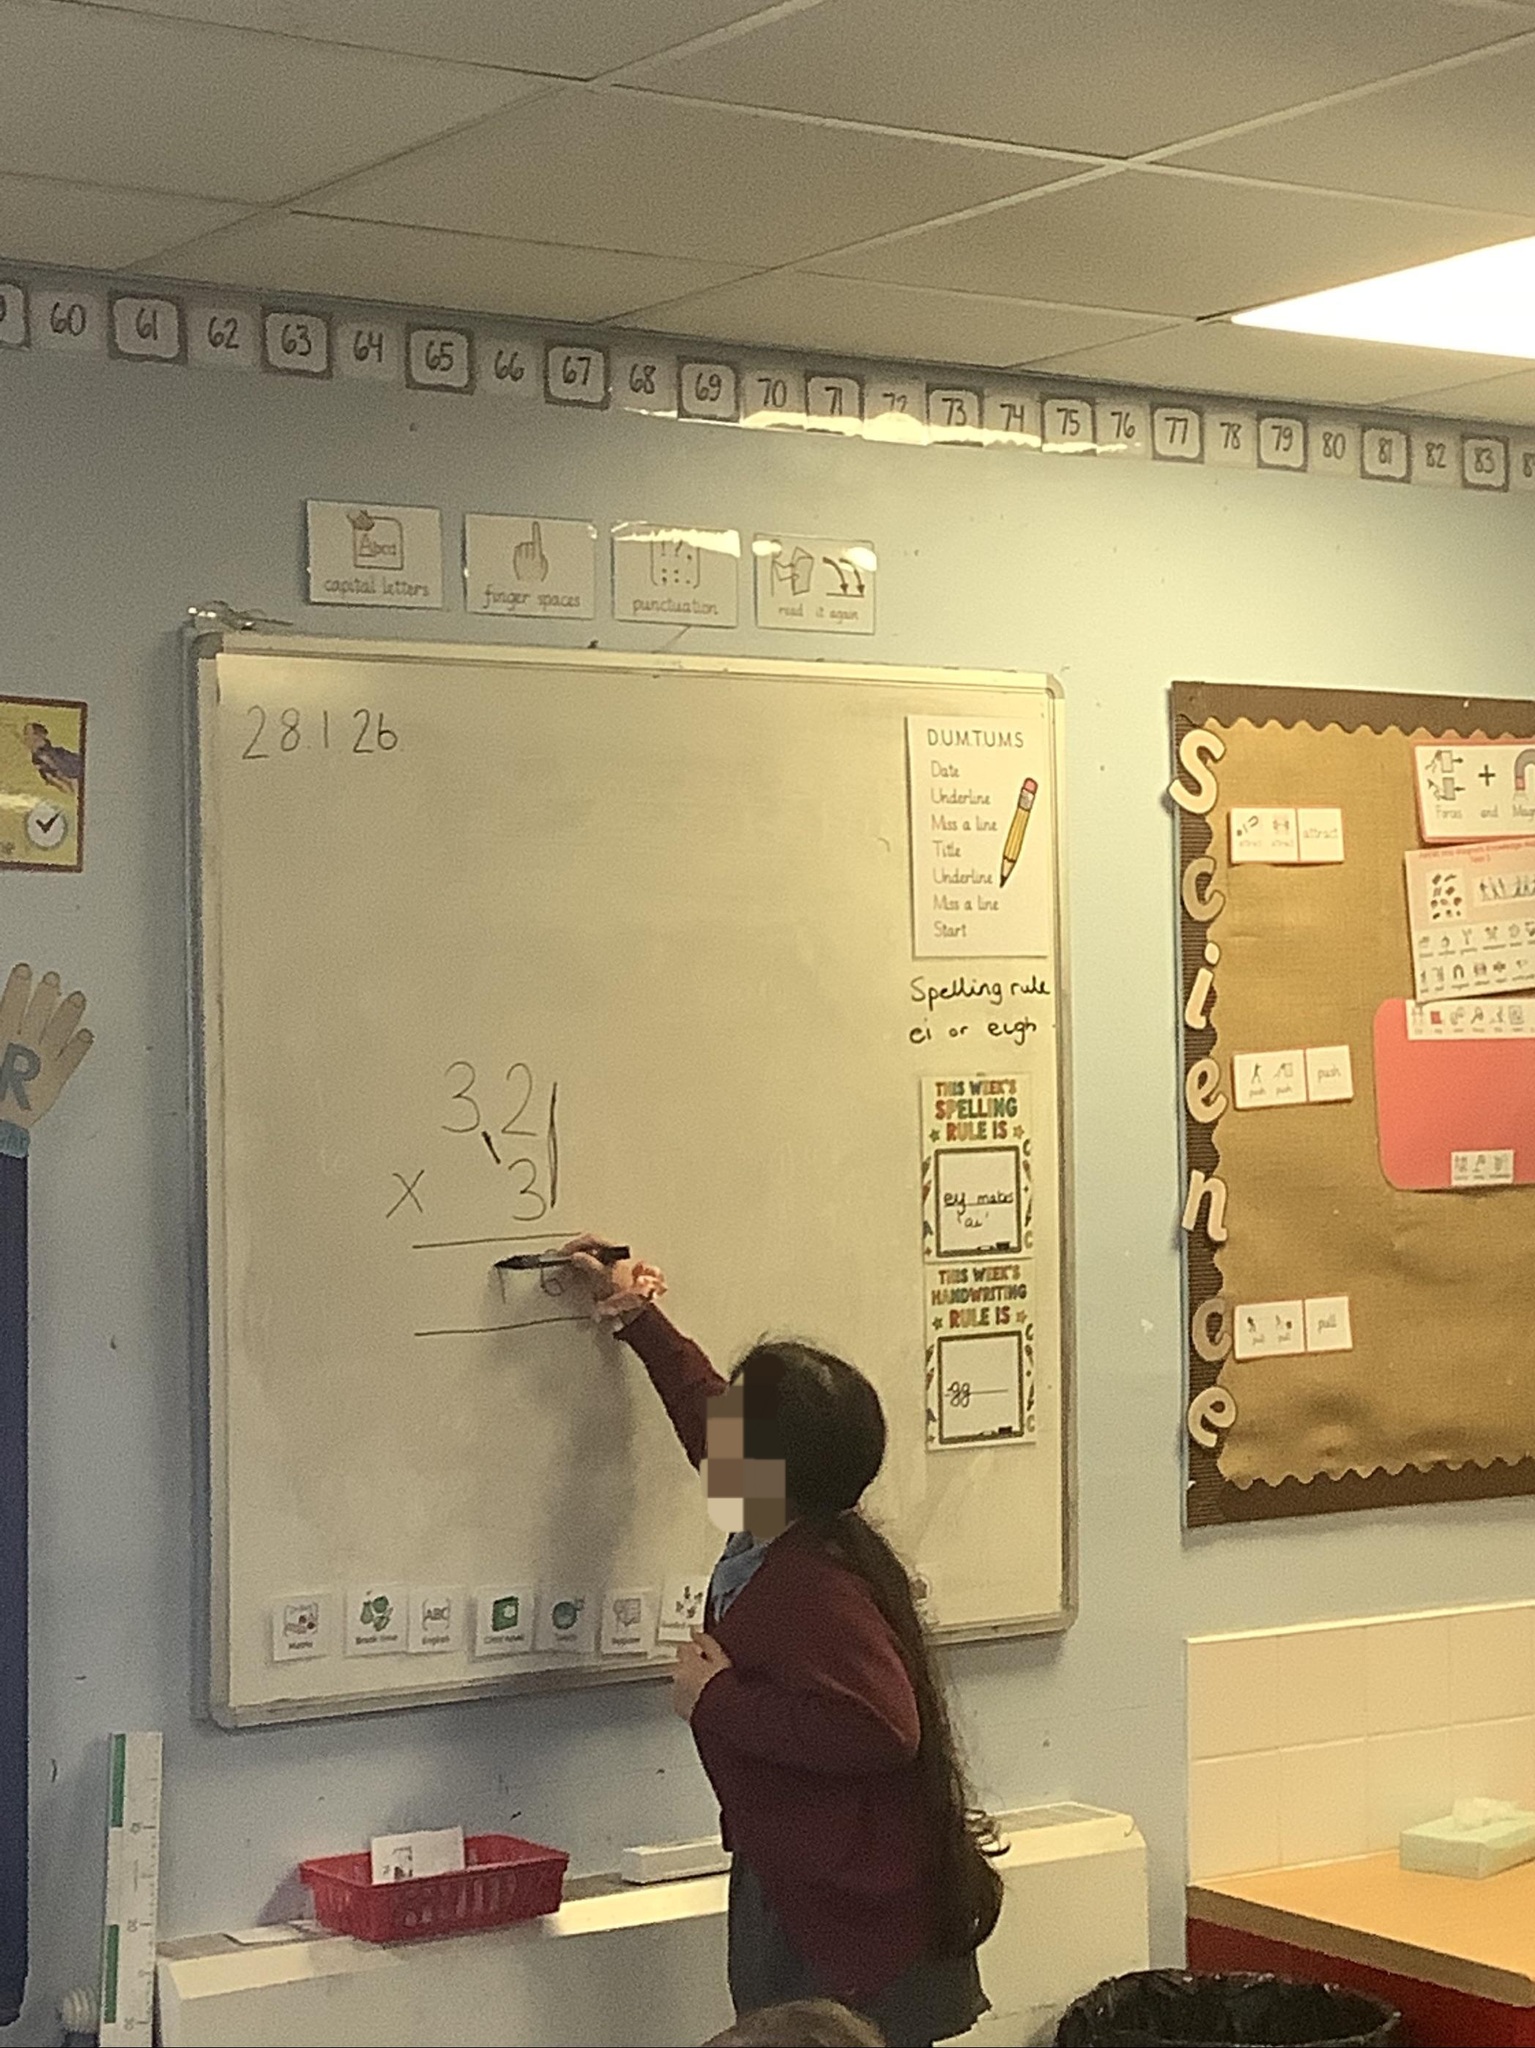 60 61 62 63 64 65 66 67 68 69 70 71 72 73 74 75 76 77 78 79 80 81 82 83
Abcd
capital letters
finger spaces
punctuation
read it again
28.1 26
D.U.M.T.U.M.S
Date
Underline
Miss a line
Title
Underline
Miss a line
Start
Spelling rule
ei or eigh
THIS WEEK'S
SPELLING
RULE IS
ey makes
'ai'
THIS WEEK'S
HANDWRITING
RULE IS
gg
32
x 3
6
R
Maths
ABC
English
Science
Forces and
attract
push push push
pull pull pull